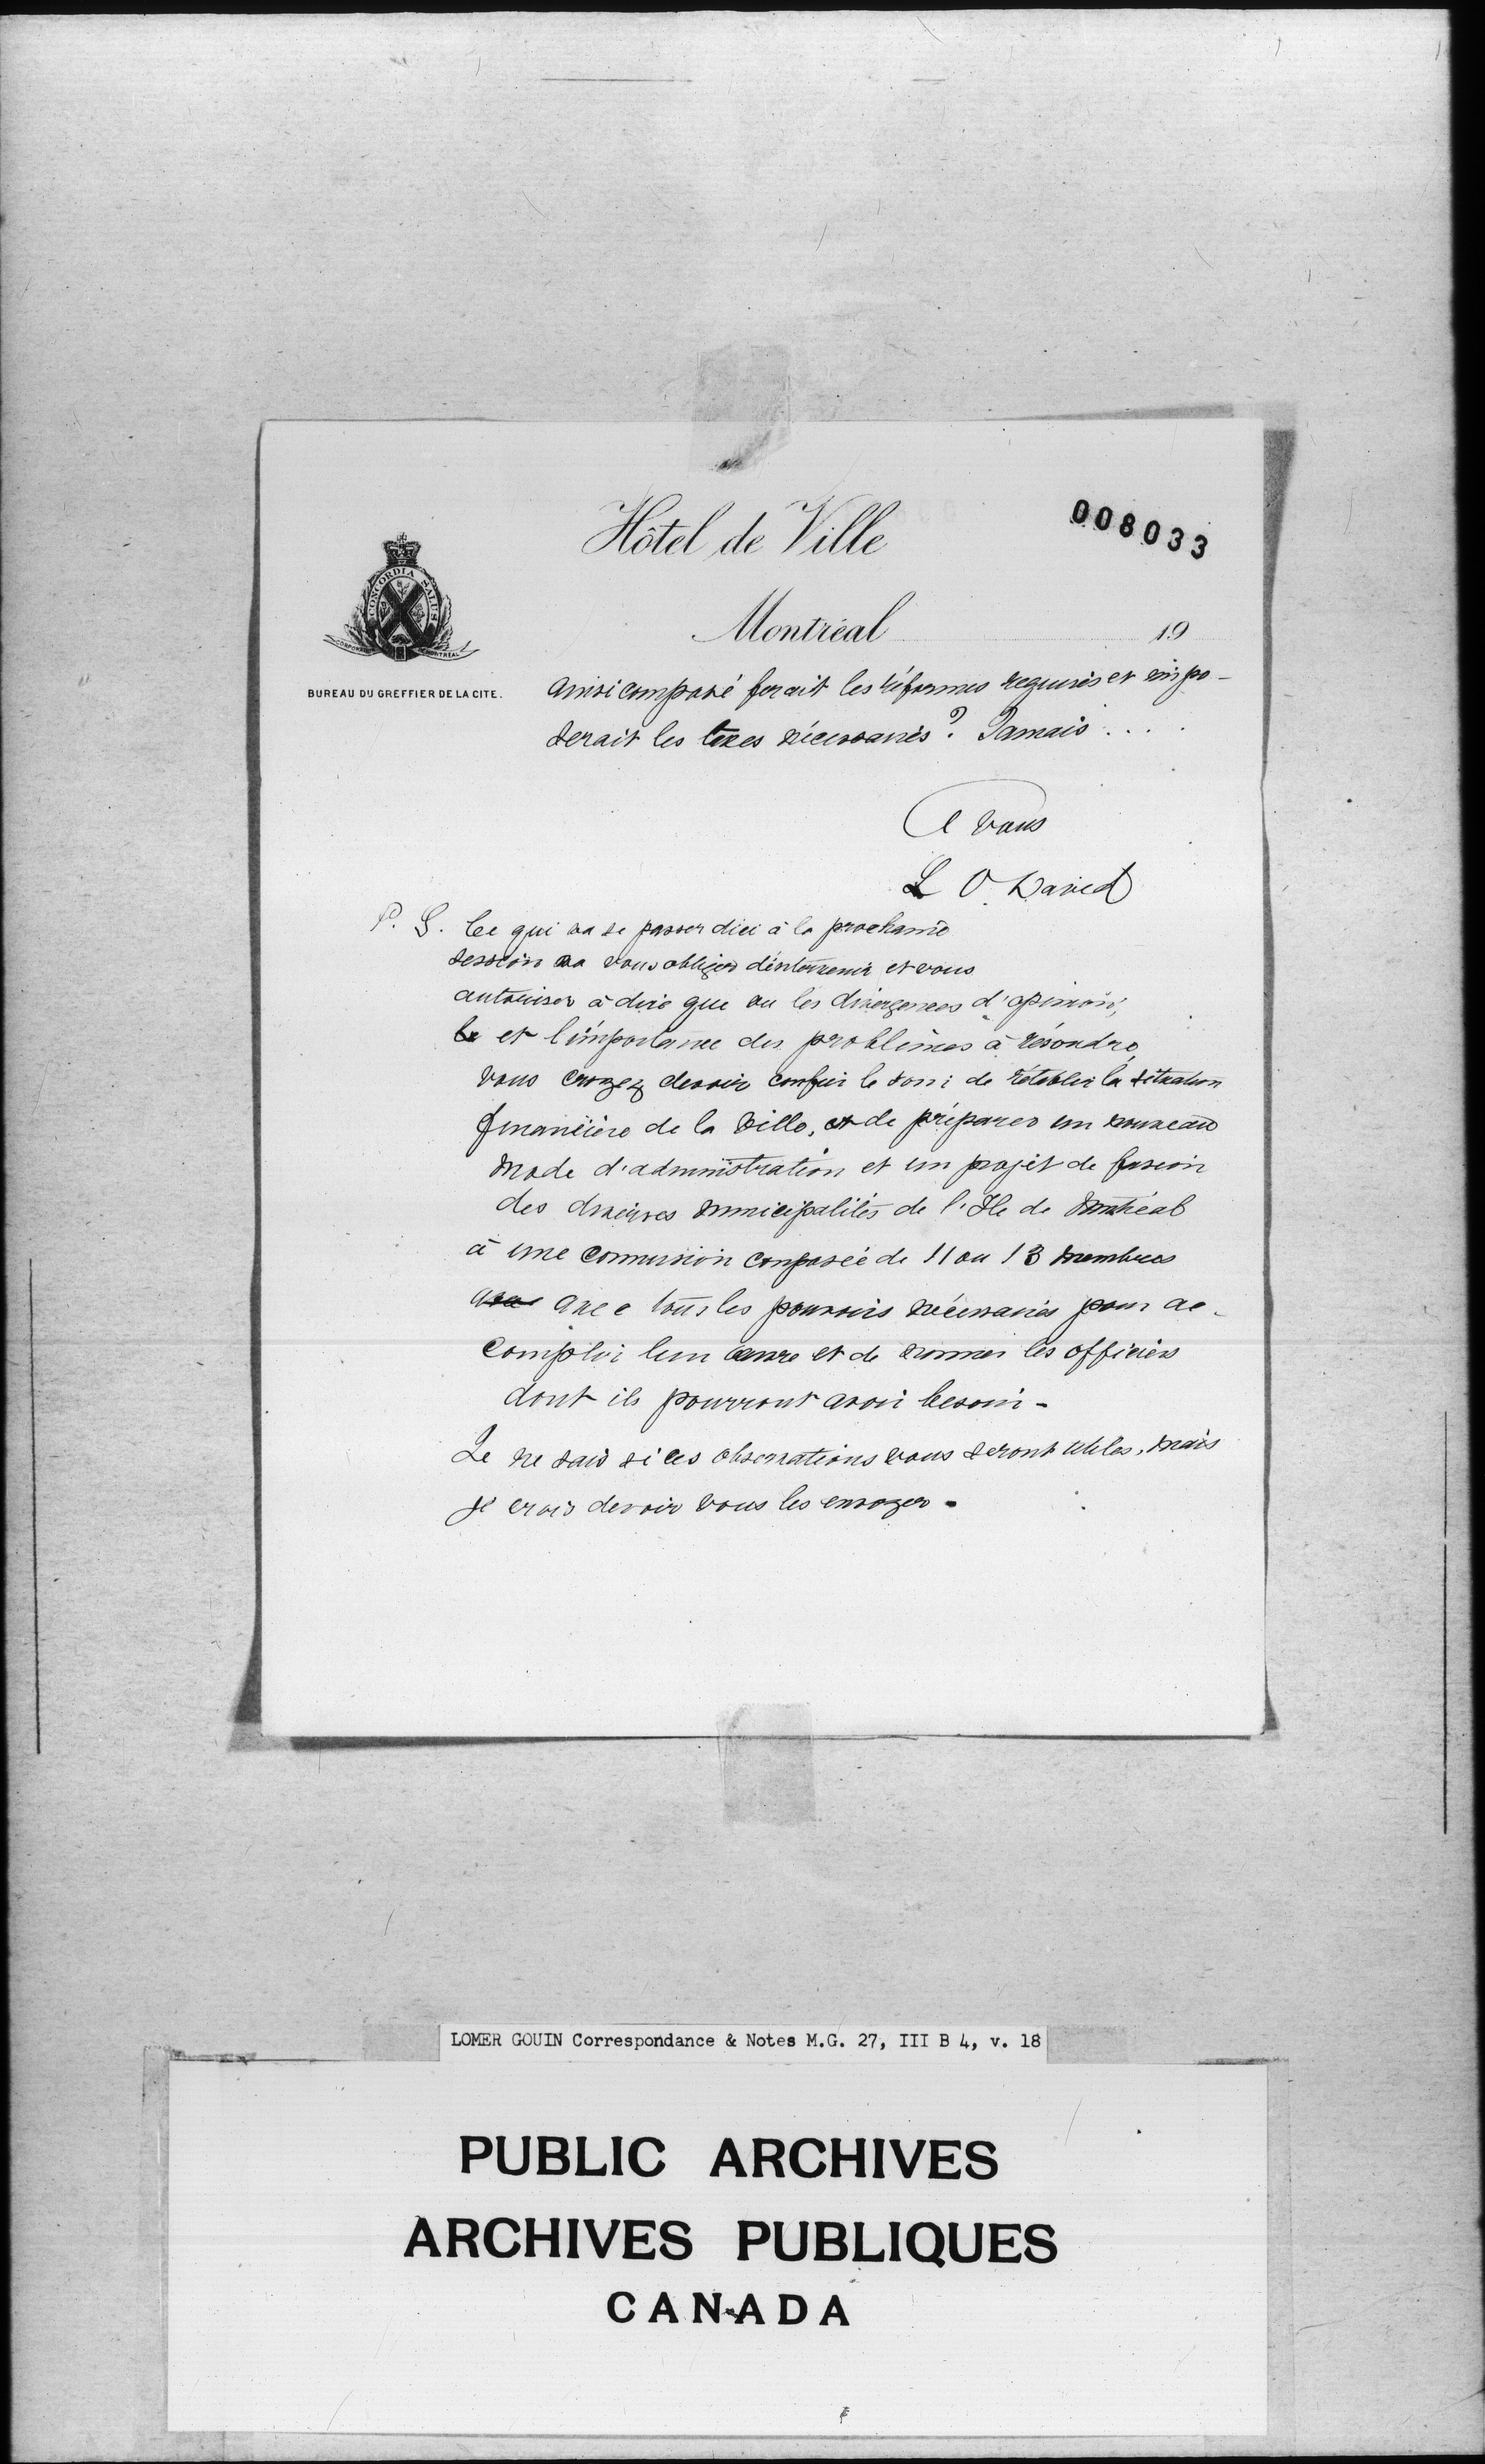 Hôtel de Ville
008033
CONCORDIA SALUS
Montréal 19
BUREAU DU GREFFIER DE LA CITE.
ainsi composé ferait les réformes requises et impo-
serait les taxes nécessaires? Jamais....
A vous
L O. David
P. S. Ce qui va se passer d'ici à la prochaine
session va vous obliger d'intervenir et vous
autoriser à dire que vu les divergences d'opinion,
le et l'importance des problèmes à résoudre,
vous croyez devoir confier le soin de rétablir la situation
financière de la Ville, et de préparer un nouveau
mode d'administration et un projet de fusion
des diverses municipalités de l'Ile de Montréal
à une commission composée de 11 ou 13 membres
avec avec tous les pouvoirs nécessaires pour ac-
complir leur œuvre et de nommer les officiers
dont ils pourront avoir besoin -
Je ne sais si ces observations vous seront utiles, mais
je crois devoir vous les envoyer -
LOMER GOUIN Correspondance & Notes M.G. 27, III B 4, v. 18
PUBLIC ARCHIVES
ARCHIVES PUBLIQUES
CANADA